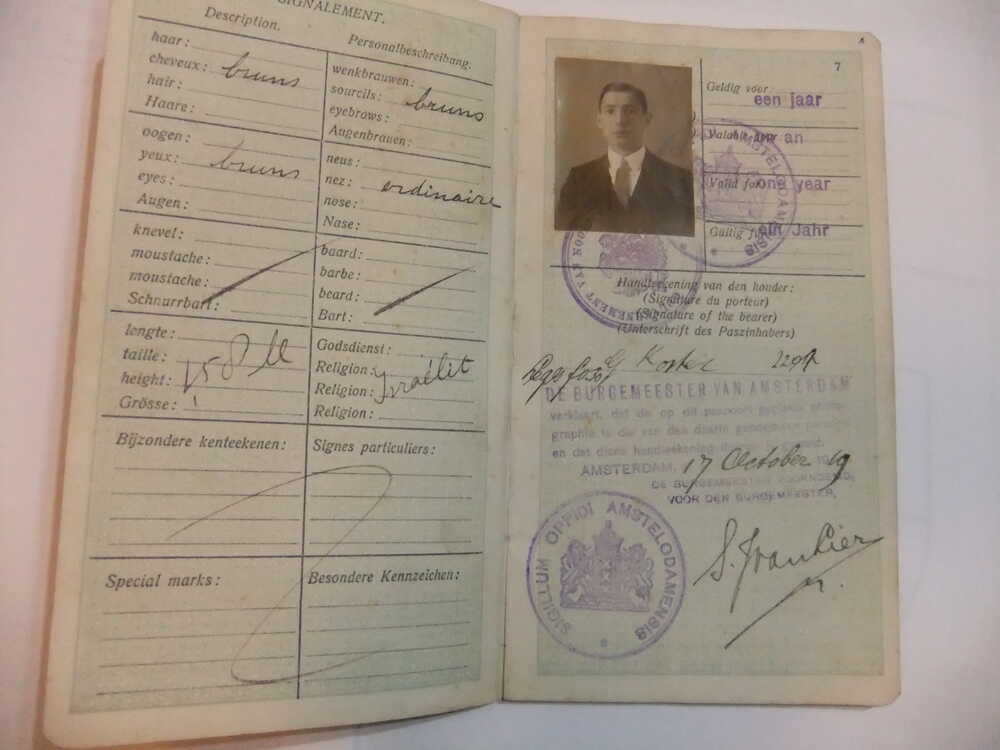 SIGNALEMENT.
Description. Personalbeschreibung.
haar:
cheveux: bruns
hair:
Haare:
wenkbrauwen:
sourcils: bruns
eyebrows:
Augenbrauen:
oogen:
yeux: bruns
eyes:
Augen:
neus:
nez: ordinaire
nose:
Nase:
knevel:
moustache:
moustache:
Schnurrbart:
baard:
barbe:
beard:
Bart:
lengte:
taille:
height: 1.58 M
Grösse:
Godsdienst:
Religion: Israélit
Religion:
Religion:
Bijzondere kenteekenen: Signes particuliers:
Special marks: Besondere Kennzeichen:
7
Geldig voor een jaar
Valable un an
Valid for one year
Gültig für ein Jahr
AMSTELODAMENSIS
Handteekening van den houder:
(Signature du porteur)
(Signature of the bearer)
(Unterschrift des Paszinhabers)
DE BURGEMEESTER VAN AMSTERDAM
verklaart, dat de op dit paspoort
en dat diens handteekening
AMSTERDAM, 17 October 1919
DE BURGEMEESTER VOORNOEMD,
VOOR DEN BURGEMEESTER,
SIGILLUM OPPIDI AMSTELODAMENSIS